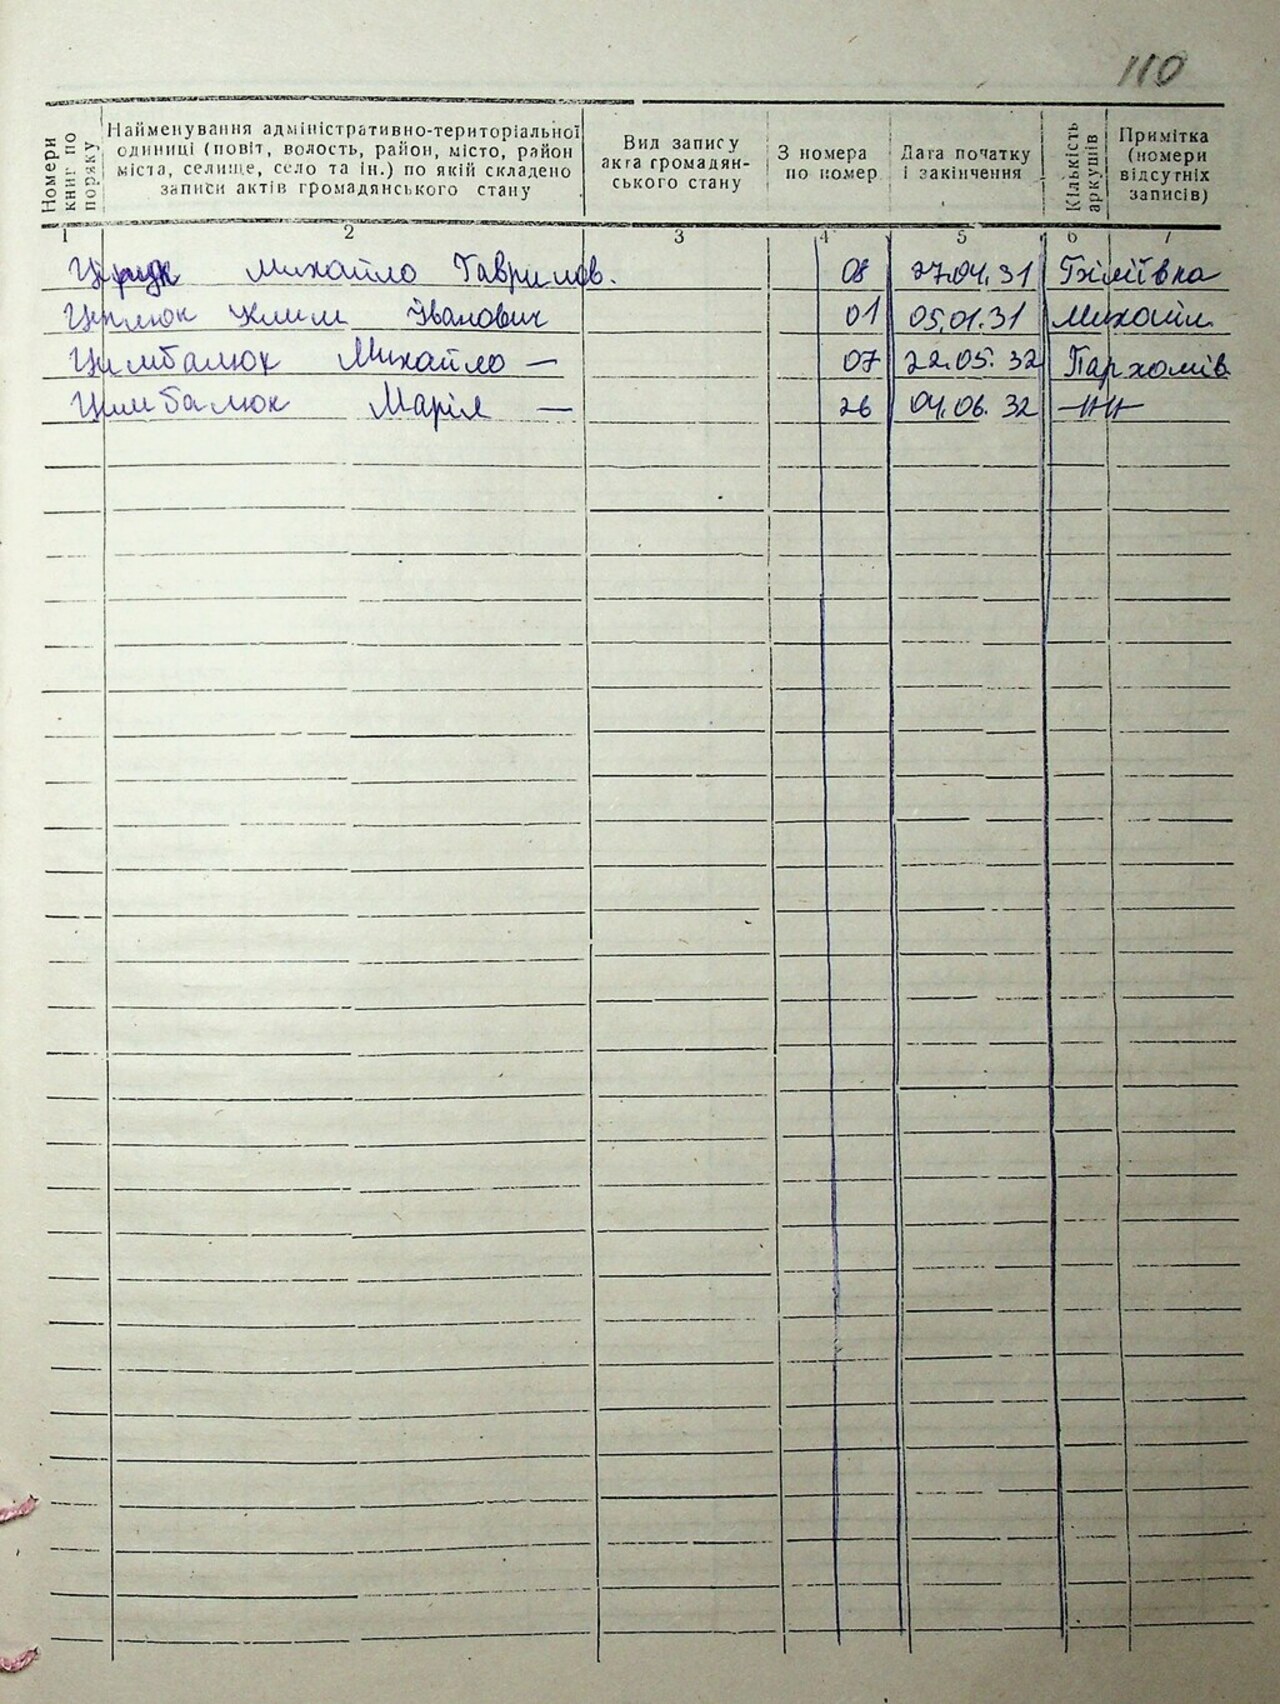 110
Номери книг по порядку
Найменування адміністративно-територіальної одиниці (повіт, волость, район, місто, район міста, селище, село та ін.) по якій складено записи актів громадянського стану
Вид запису акта громадян-ського стану
З номера по номер
Дата початку і закінчення
Кількість аркушів
Примітка (номери відсутніх записів)
1 2 3 4 5 6 7
Михайло Гаврилов. 08 27.04.31
Клим Іванович 01 05.01.31 Михайл.
Цимбалюк Михайло — 07 22.05.32 Пархомів
Цимбалюк Марія — 26 04.06.32 —//—